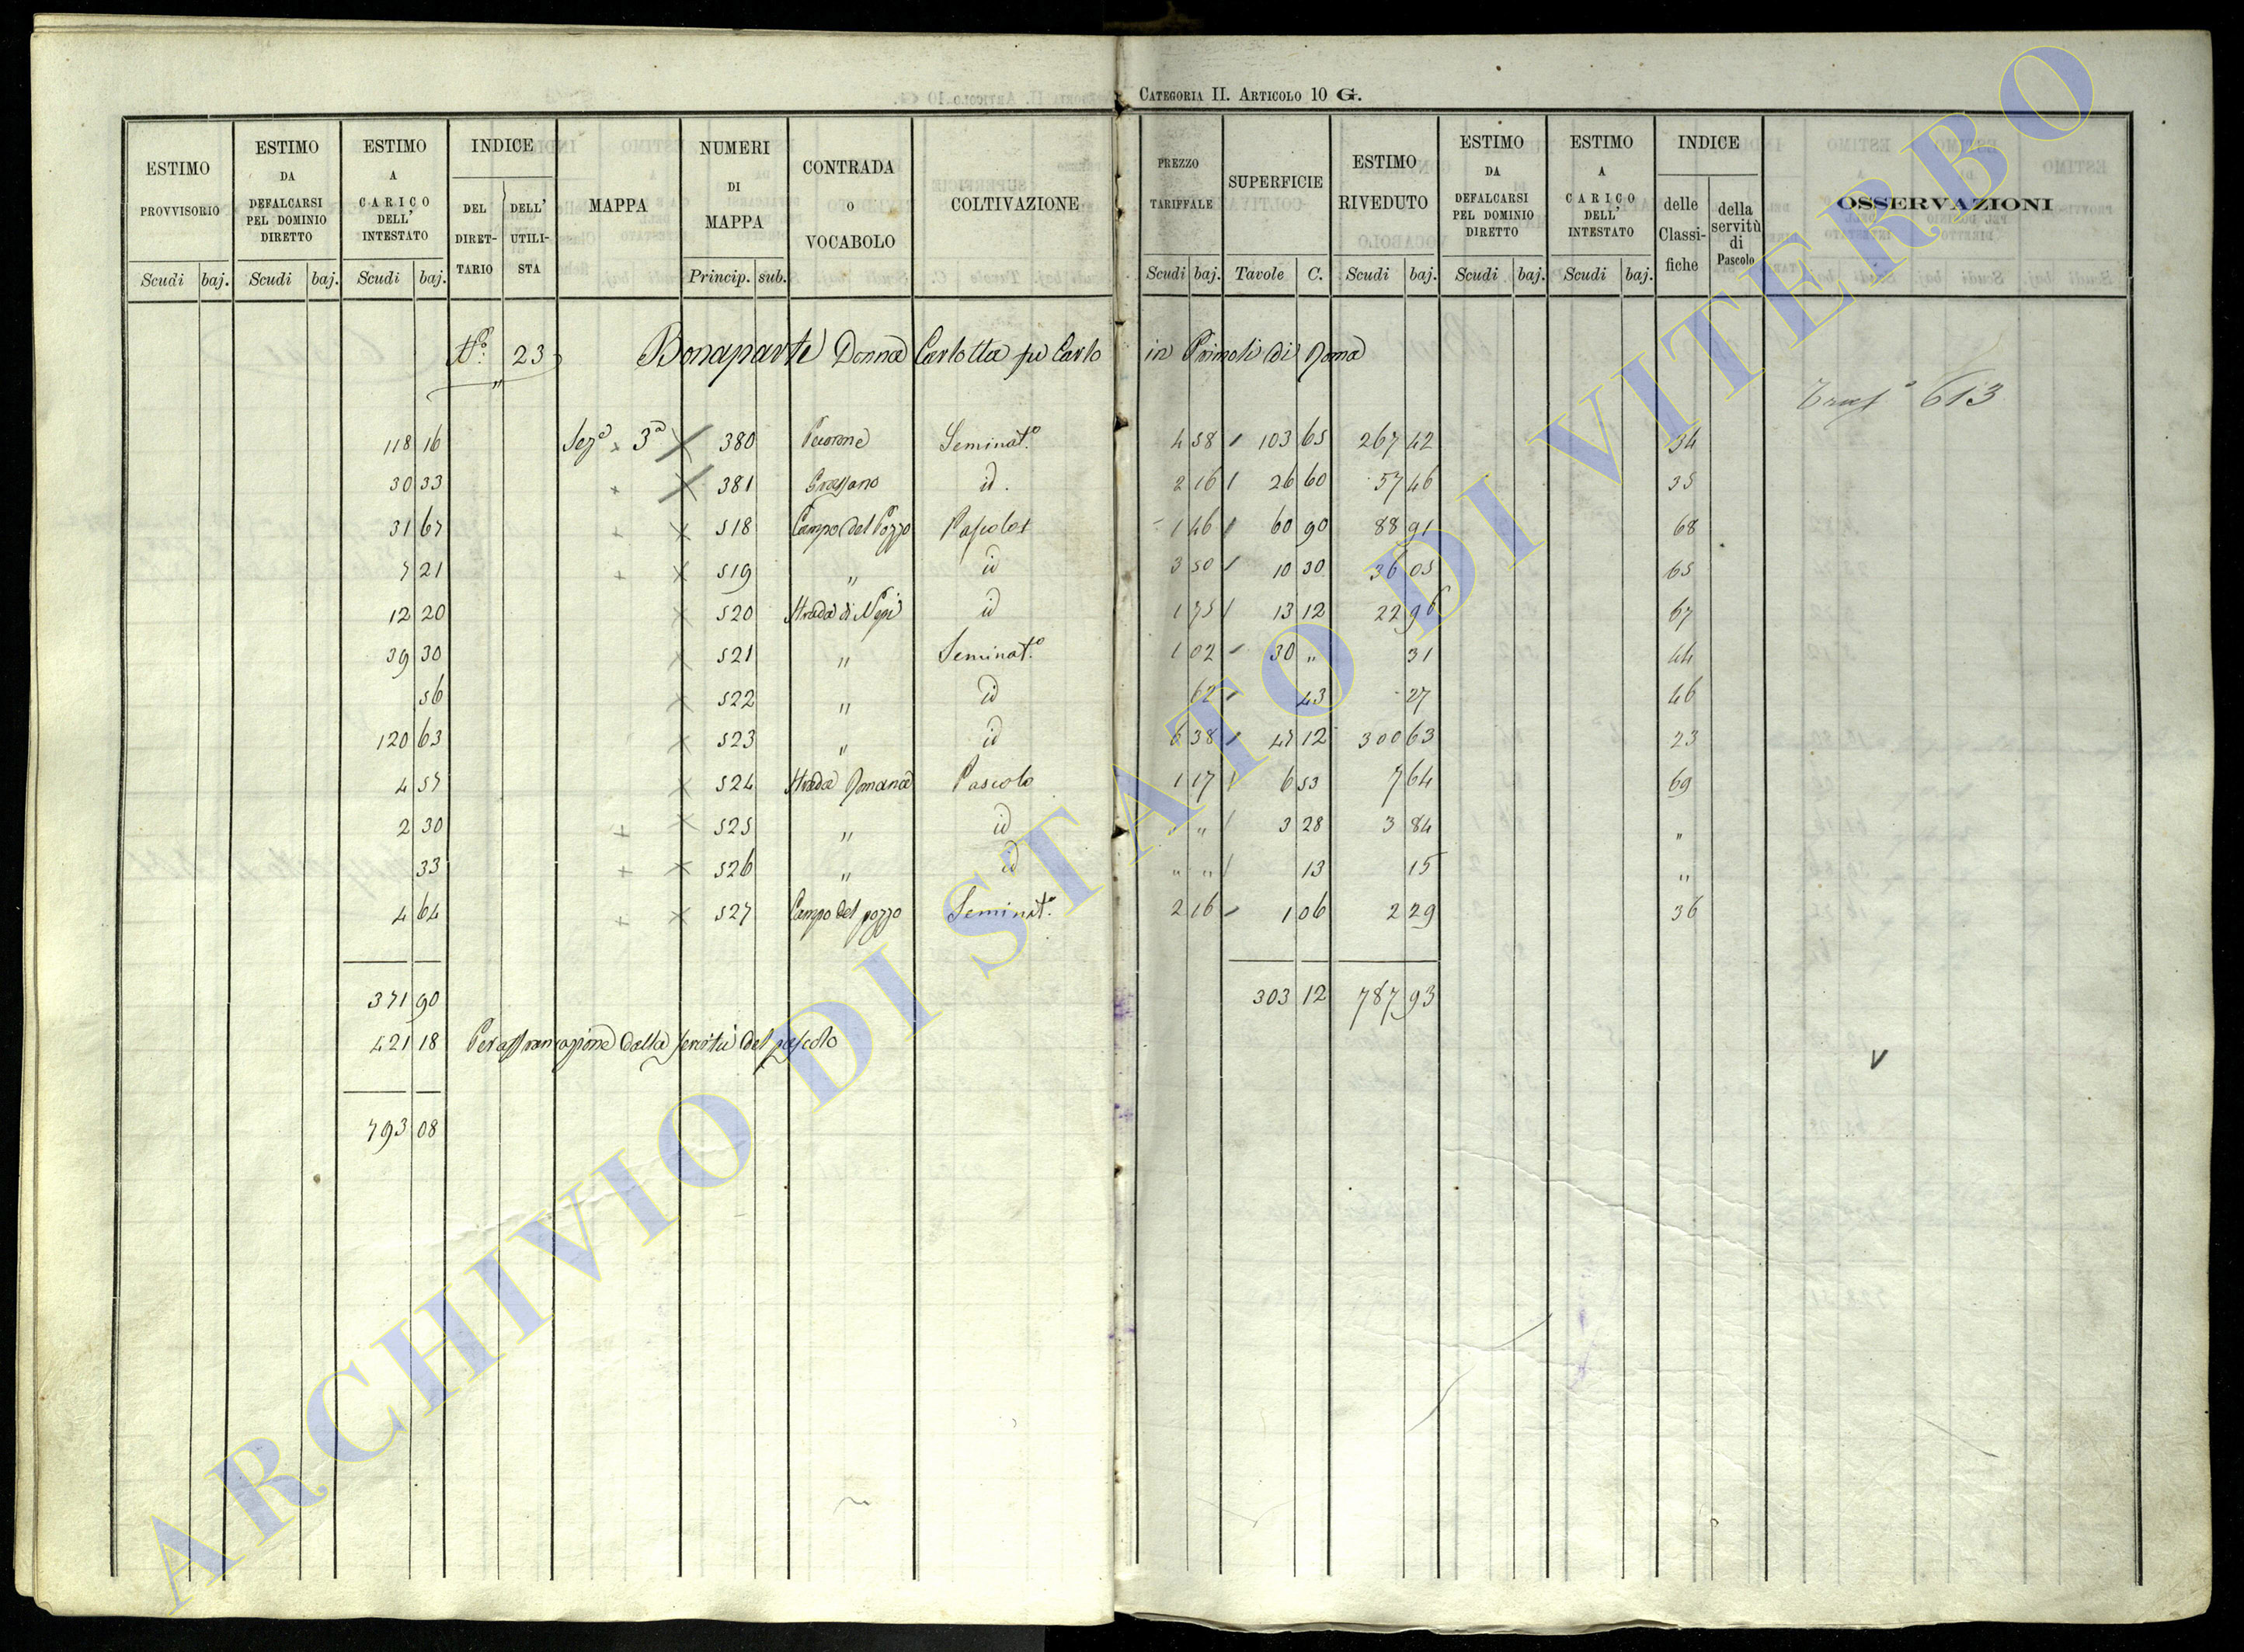 CATEGORIA II. ARTICOLO 10 G.
ESTIMO PROVVISORIO
ESTIMO DA DEFALCARSI PEL DOMINIO DIRETTO
ESTIMO A CARICO DELL' INTESTATO
INDICE
DEL DIRETTARIO
DELL' UTILISTA
MAPPA
NUMERI DI MAPPA
CONTRADA O VOCABOLO
COLTIVAZIONE
PREZZO TARIFFALE
SUPERFICIE
ESTIMO RIVEDUTO
ESTIMO DA DEFALCARSI PEL DOMINIO DIRETTO
ESTIMO A CARICO DELL' INTESTATO
INDICE
delle Classifiche
della servitù di Pascolo
OSSERVAZIONI
Scudi baj. Scudi baj. Scudi baj. Princip. sub. Scudi baj. Tavole C. Scudi baj. Scudi baj. Scudi baj.
N.º 23 Bonaparte Donna Carlotta fu Carlo in Primoli di Roma
613
118 16 Sez.e 3a 380 Seminat.o 4 58 103 65 267 42 34
30 33 381 Grassano id. 2 16 26 60 57 46 35
31 67 518 Campo del Pozzo Pascolo 1 46 60 90 88 91 68
7 21 519 " id 3 50 10 30 36 05 65
12 20 520 Strada di Nepi id 1 75 13 12 22 96 67
39 30 521 " Seminat.o 1 02 30 " 31 44
56 522 " id 62 43 27 46
120 63 523 " id 6 38 47 12 300 63 23
4 57 524 Strada Romana Pascolo 1 17 6 53 7 64 69
2 30 525 " id " " 3 28 3 84 "
33 526 " id " " 13 15 "
4 64 527 Campo del pozzo Seminat.o 2 16 1 06 2 29 36
371 90 303 12 787 93
421 18 Per affrancazione della servitù del pascolo
793 08
ARCHIVIO DI STATO DI VITERBO